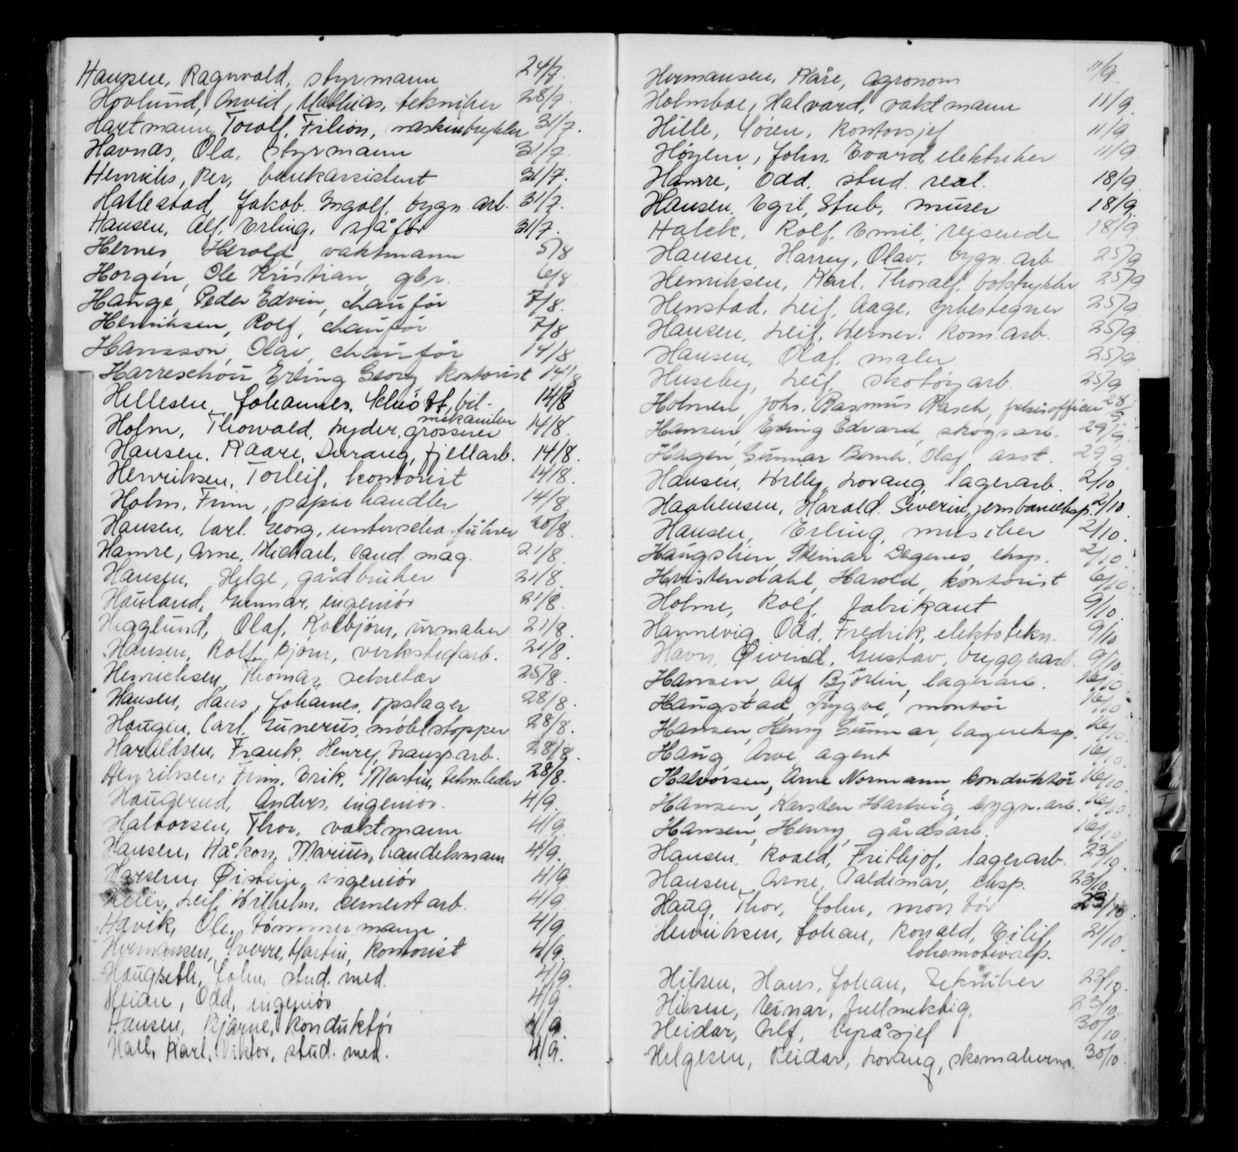 Hansen, Ragnvald, styrmann 24/7.
Hovlund, Arvid, Mathias, tekniker 28/9.
Hartmann, Torolf, Filion, maskinbrykker 31/7.
Havnås, Ola, styrmann 31/7.
Henriks, Per, bankassistent 31/7.
Hatlestad, Jakob, Ingolf, bygn. arb. 31/7.
Hansen, Alf, Erling, sjåfør 31/7.
Hernes, Harold, vaktmann 5/8
Horgen, Ole Kristian, gbr. 6/8
Hauge, Peder Edvin, chaufør 7/8.
Henriksen, Rolf, chaufør 7/8
Hansson, Olav, chaufør 14/8
Harreschou, Erling Georg, kontorist 14/8
Hellesen, Johannes, bil- 14/8
mekaniker
Holm, Thorvald, Lyder, grosserer 14/8
Hansen, Kaare, fjellarb. 14/8.
Henriksen, Torleif, kontorist 14/8.
Holm, Finn, papirhandler 14/8
Hansen, Carl Georg, unterscha. führer 20/8.
Hamre, Arne, Michael, cand. mag. 21/8.
Hansen, Helge, gårdbruker 21/8.
Hauland, Gunnar, ingeniør 21/8.
Hegglund, Olaf, Kolbjørn, urmaker 21/8.
Hansen, Rolf, Bjørn, verkstedarb. 21/8.
Henrichsen, Thomas, sekretær 25/8.
Hansen, Hans, Johannes, opslager 28/8.
Haugen, Carl, Gunerius, møbelstopper 28/8.
Haraldsen, Frank, Henry, transp. arb. 28/8.
Henriksen, Finn, Erik, Martin, tekn. leder 28/8.
Haugerud, Anders, ingeniør. 4/9.
Halvorsen, Thor, vaktmann 4/9.
Hansen, Håkon, Marius, handelsmann 4/9.
Hansen, Øistein, ingeniør 4/9.
Leif, Wilhelm, sementarb. 4/9.
Håvik, Ole, tømmermann 4/9.
Hermansen, Sverre, Martin, kontorist 4/9.
Haugseth, John, stud. med. 4/9.
Heian, Odd, ingeniør 4/9
Hansen, Bjarne, konduktør 4/9.
Hall, Karl, Viktor, stud. med. 4/9.
Hermansen, Kåre, agronom 11/9.
Holmboe, Halvard, vaktmann 11/9.
Hille, Søren, kontorsjef 11/9
Høyem, John, Edvard, elektriker 11/9
Hamre, Odd, stud. real. 18/9
Hansen, Egil, Stub, murer 18/9.
Halck, Rolf, Emil, reisende 18/9.
Hansen, Harry, Olav, bygn. arb. 25/9
Henriksen, Karl, Thoralf, boktrykker 25/9
Henstad, Leif, Aage, 25/9
Hansen, Leif, Werner, kom. arb. 25/9
Hansen, Olaf, maler 25/9
Huseby, Leif, skotøyarb. 25/9
Holmen, Johs. Rasmus Rasch, frelsesofficer 28/9
Hansen, Erling Edvard, skogsarb. 29/9
Hagen, Gunnar Bernh. Olaf, asst. 29/9
Hansen, Willy, Lorang, lagerarb. 2/10
Haakensen, Harald, Severin, jernbaneeksp. 2/10.
Hansen, Erling, musiker 2/10.
Haugslien, Reimar Degenes, eksp. 2/10.
Hvistendahl, Harold, kontorist 6/10
Holme, Rolf, fabrikant 9/10
Hannevig, Odd, Fredrik, elektrotekn. 9/10
Havn, Øivind, Gustav, bryggearb. 9/10
Hansen, Alf Bjørlin, lagerarb. 16/10.
Haugstad, Trygve, montør 16/10.
Hansen, Henry Gunnar, lagereksp. 16/10.
Haug, Arve, agent 16/10.
Halvorsen, Arne Normann, konduktør 16/10.
Hansen, Karsten Hartvig, bygn. arb. 16/10
Hansen, Henry, gårdsarb. 16/10
Hansen, Roald, Fritbjof, lagerarb. 23/10
Hansen, Arne, Valdemar, eksp. 23/10
Haug, Thor, John, montør 23/10
Henriksen, Johan, Ronald, Eilif, 21/10.
lokomotivasp.
Hilsen, Hans, Johan, tekniker 23/10.
Hilsen, Einar, fullmektig. 23/10.
Heidar, Alf, byråsjef 30/10
Helgesen, Reidar, Lorang, skomakerm. 30/10.